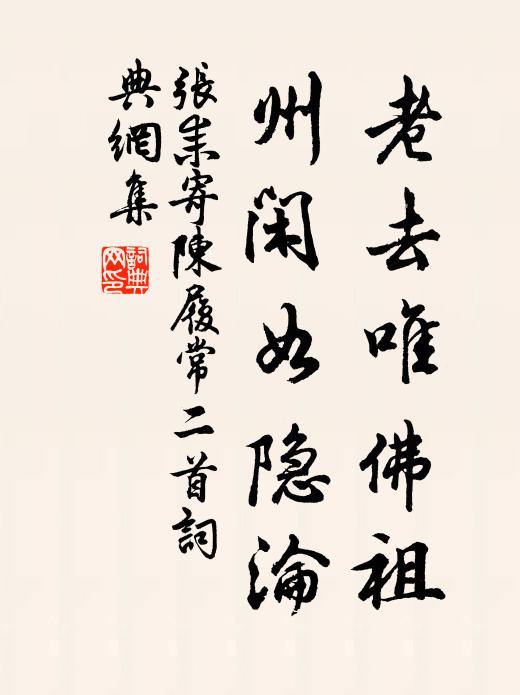 老去唯佛祖
州闲如隐淪
張耒寄陳履常二首詞
典網集
詞典
网印